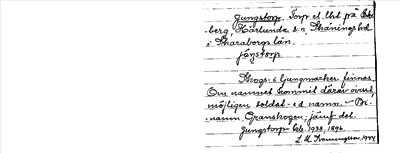 Jungstorp. Torp el. lht på
berg, Härlunda s:n, Skånings hd
i Skaraborgs län.
jóŋstɔrp
Skogs- o ljungmarker finnas.
Om namnet kommit därav ovisst,
möjligen soldat- ed namn. –
namn Granskogen; jämf. det
Jungstorp
1944